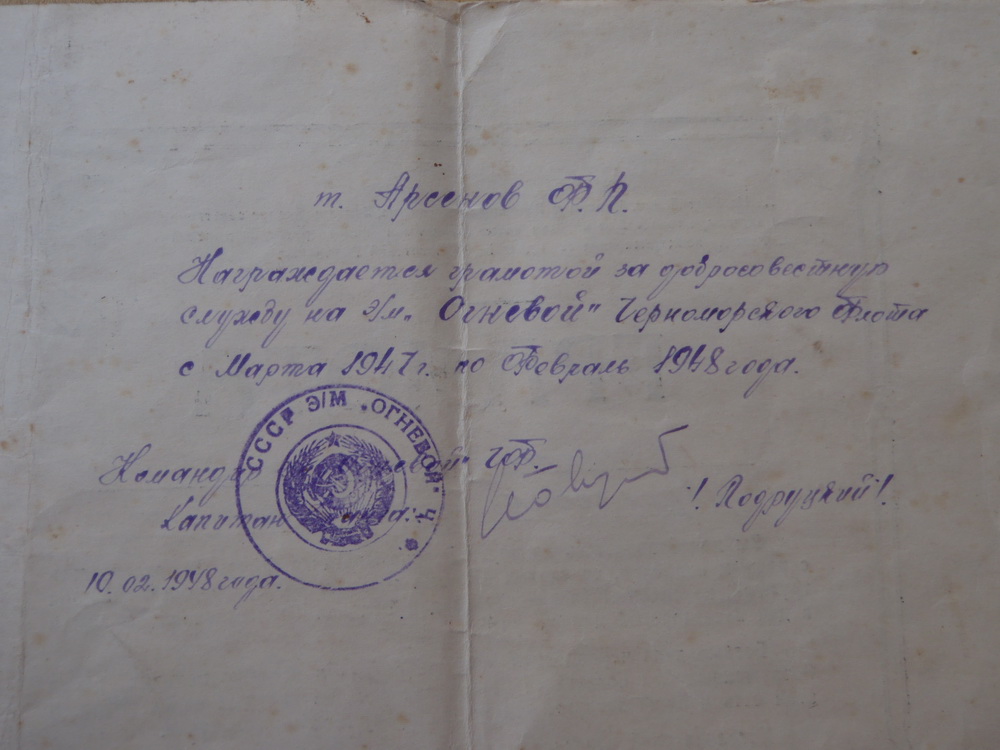 т. Арсенов Ф. П.
Награждается грамотой за добросовестную
службу на Э/м. „Огневой" Черноморского Флота
с Марта 1947 г. по Февраль 1948 года.
СССР Э/М „ОГНЕВОЙ" Ч Ф
Командир ЧФ.
Капитан
! Подруцкий !
10.02.1948 года.